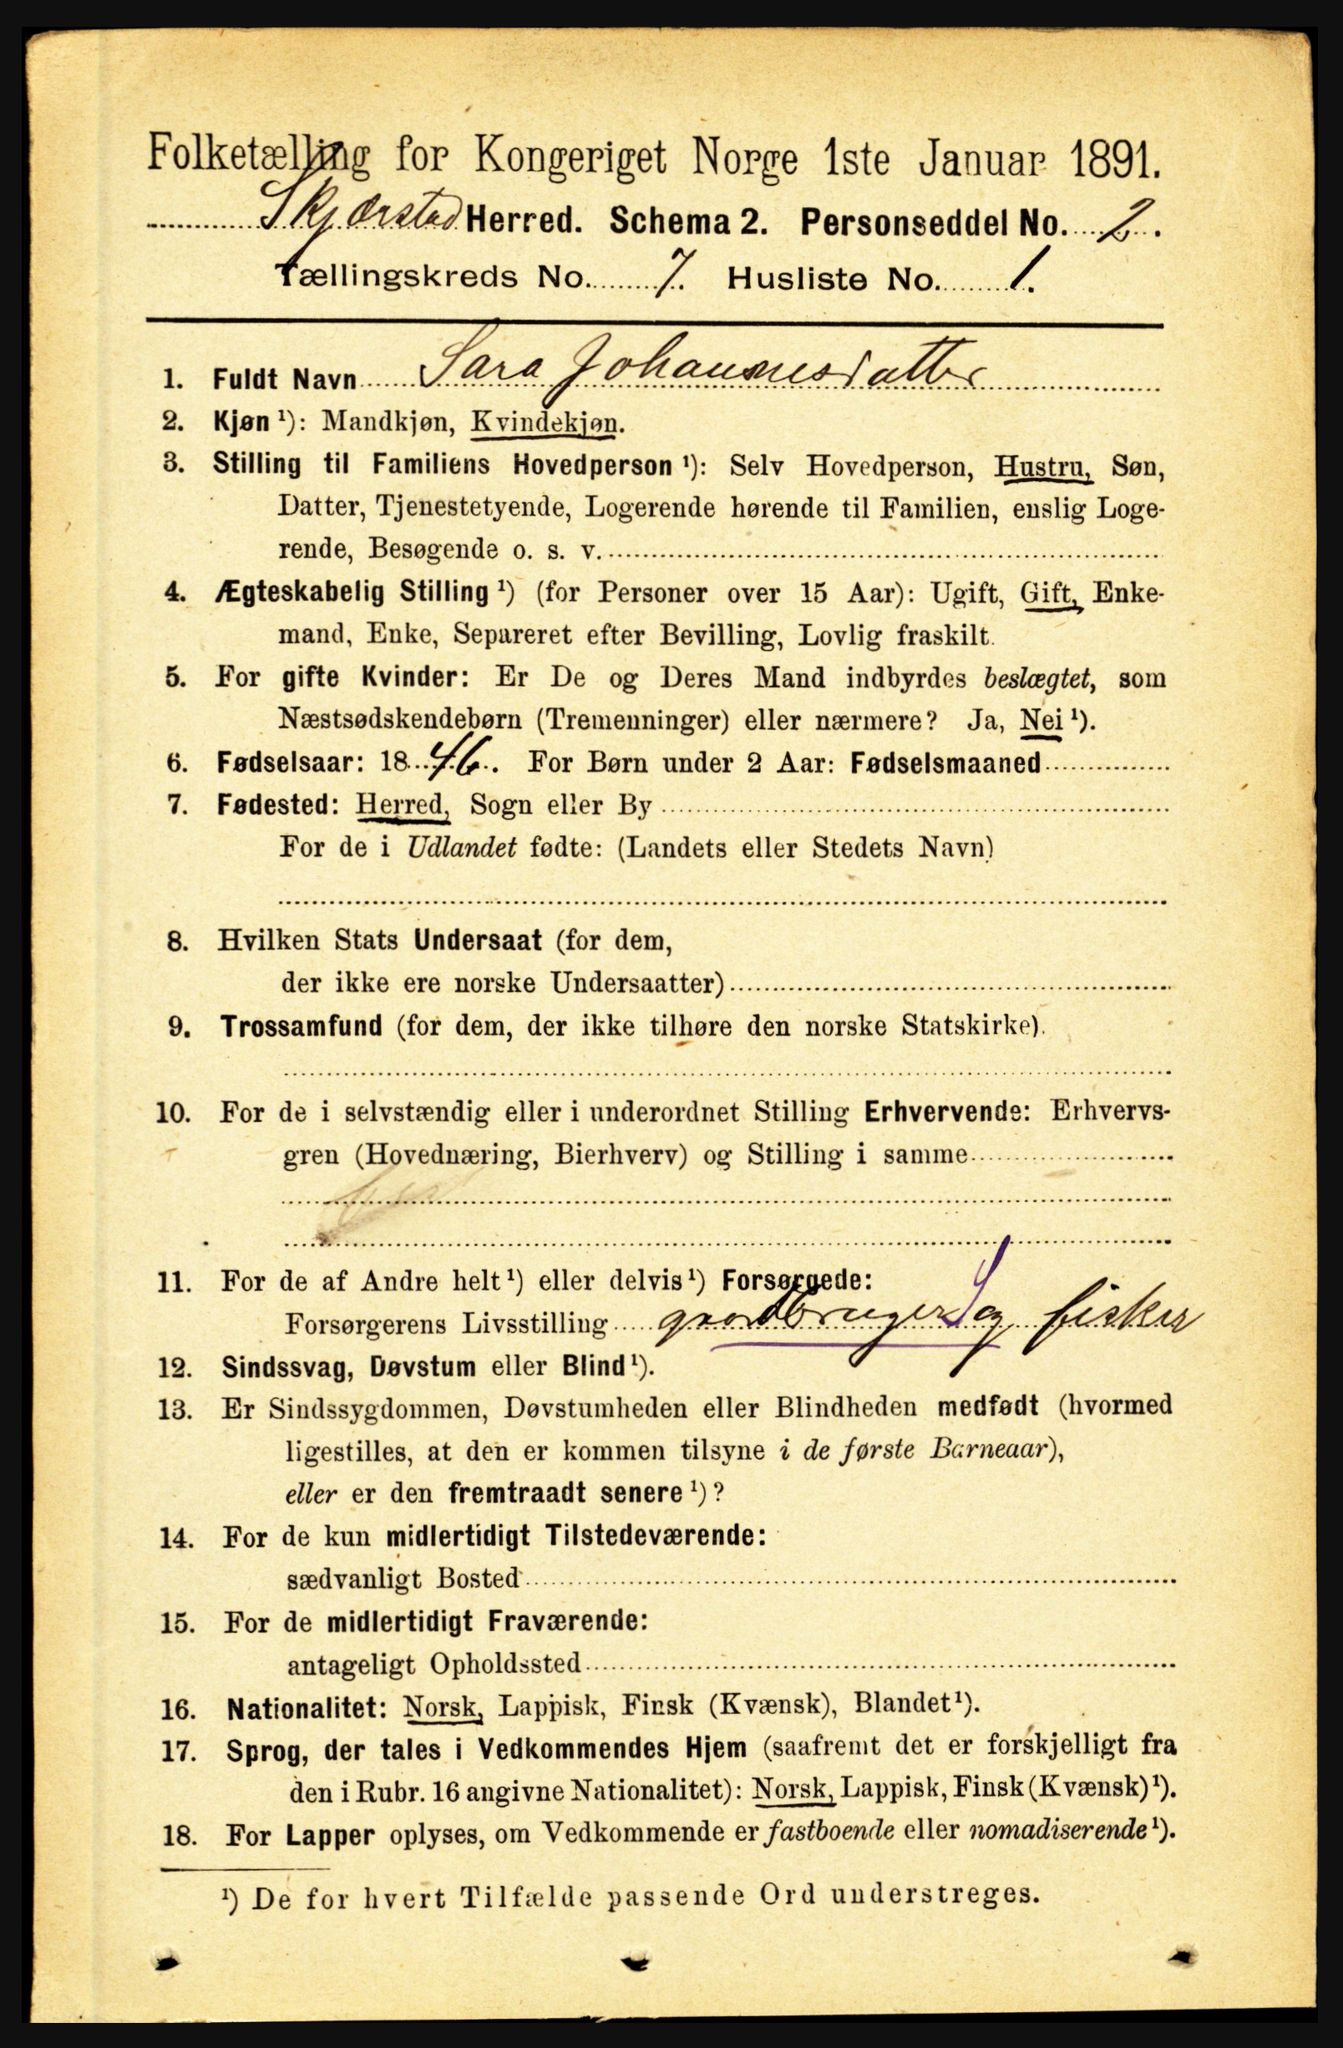 Folketælling for Kongeriget Norge 1ste Januar 1891.
Skjærstad Herred. Schema 2. Personseddel No. 2.
Tællingskreds No. 7. Husliste No. 1.
1. Fuldt Navn Sara Johannesdatter
2. Kjøn ¹): Mandkjøn, Kvindekjøn.
3. Stilling til Familiens Hovedperson ¹): Selv Hovedperson, Hustru, Søn,
Datter, Tjenestetyende, Logerende hørende til Familien, enslig Loge-
rende, Besøgende o. s. v.
4. Ægteskabelig Stilling ¹) (for Personer over 15 Aar): Ugift, Gift, Enke-
mand, Enke, Separeret efter Bevilling, Lovlig fraskilt.
5. For gifte Kvinder: Er De og Deres Mand indbyrdes beslægtet, som
Næstsødskendebørn (Tremenninger) eller nærmere? Ja, Nei ¹).
6. Fødselsaar: 1846. For Børn under 2 Aar: Fødselsmaaned
7. Fødested: Herred, Sogn eller By
For de i Udlandet fødte: (Landets eller Stedets Navn)
8. Hvilken Stats Undersaat (for dem,
der ikke ere norske Undersaatter)
9. Trossamfund (for dem, der ikke tilhøre den norske Statskirke).
10. For de i selvstændig eller i underordnet Stilling Erhvervende: Erhvervs-
gren (Hovednæring, Bierhverv) og Stilling i samme
11. For de af Andre helt ¹) eller delvis ¹) Forsørgede:
Forsørgerens Livsstilling gaardbruger S og fisker
12. Sindssvag, Døvstum eller Blind ¹).
13. Er Sindssygdommen, Døvstumheden eller Blindheden medfødt (hvormed
ligestilles, at den er kommen tilsyne i de første Barneaar),
eller er den fremtraadt senere ¹)?
14. For de kun midlertidigt Tilstedeværende:
sædvanligt Bosted
15. For de midlertidigt Fraværende:
antageligt Opholdssted
16. Nationalitet: Norsk, Lappisk, Finsk (Kvænsk), Blandet ¹).
17. Sprog, der tales i Vedkommendes Hjem (saafremt det er forskjelligt fra
den i Rubr. 16 angivne Nationalitet): Norsk, Lappisk, Finsk (Kvænsk) ¹).
18. For Lapper oplyses, om Vedkommende er fastboende eller nomadiserende ¹).
¹) De for hvert Tilfælde passende Ord understreges.